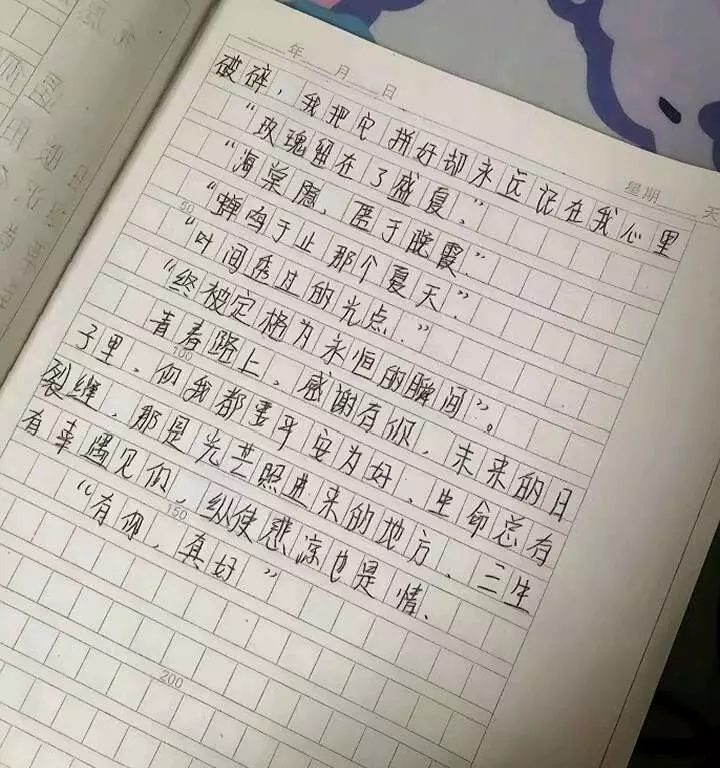 年 月 日
星期 天
破碎，我把它拼好却永远记在我心里
“玫瑰留在了盛夏，”
“海棠隐，匿于晚霞”
“蝉鸣于止那个夏天”
“叶间透过的光点.”
“终被定格为永恒的瞬间”。
青春路上，感谢有你，未来的日
子里，你我都要平安为好、生命总有
裂缝，那是光芒照进来的地方、三生
有幸遇见你，纵使悲凉也是情、
“有你，真好”
50
100
150
200